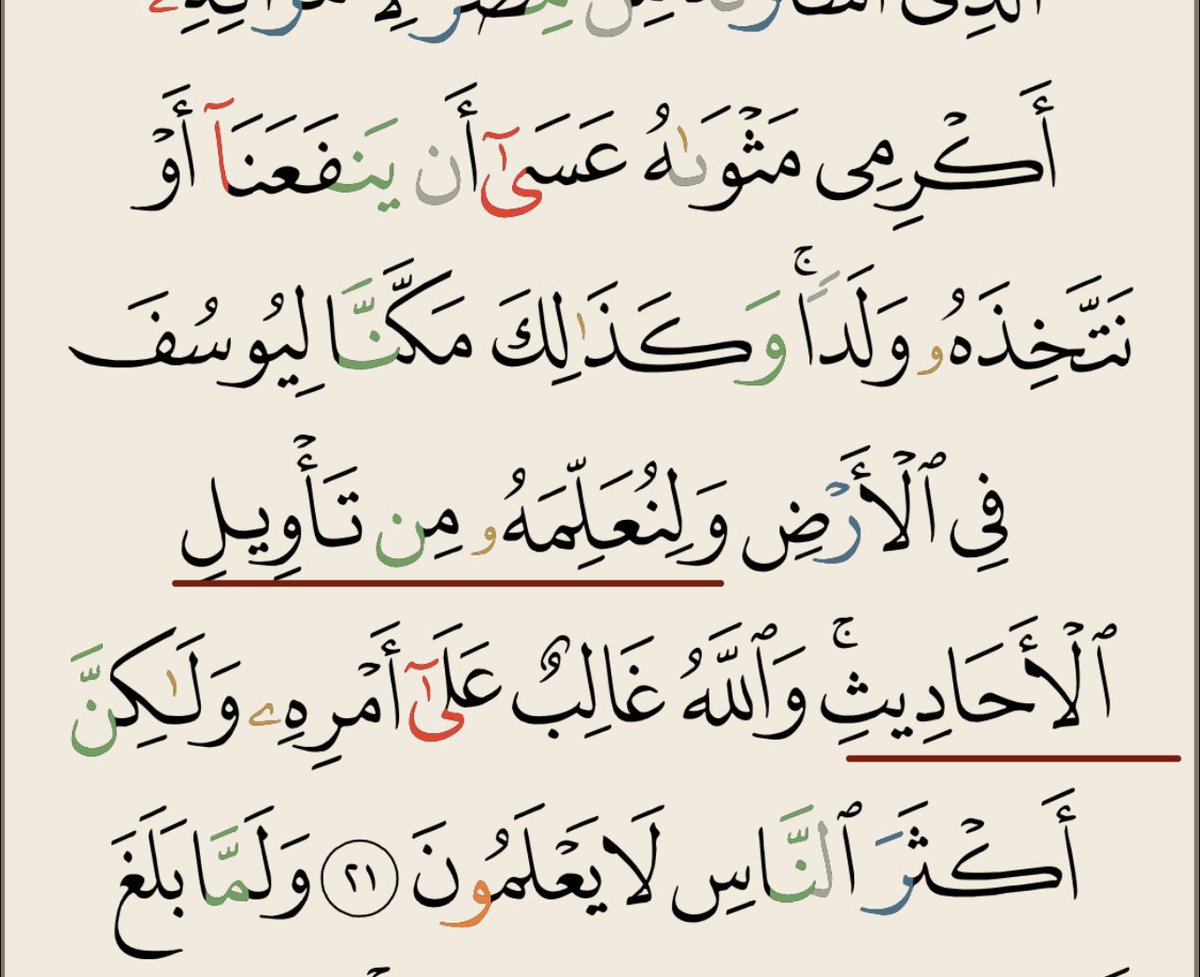 أَكْرِمِى مَثْوَىٰهُ عَسَىٰٓ أَن يَنفَعَنَآ أَوْ
نَتَّخِذَهُۥ وَلَدًا ۚ وَكَذَٰلِكَ مَكَّنَّا لِيُوسُفَ
فِى ٱلْأَرْضِ وَلِنُعَلِّمَهُۥ مِن تَأْوِيلِ
ٱلْأَحَادِيثِ ۚ وَٱللَّهُ غَالِبٌ عَلَىٰٓ أَمْرِهِۦ وَلَـٰكِنَّ
أَكْثَرَ ٱلنَّاسِ لَا يَعْلَمُونَ ٢١ وَلَمَّا بَلَغَ